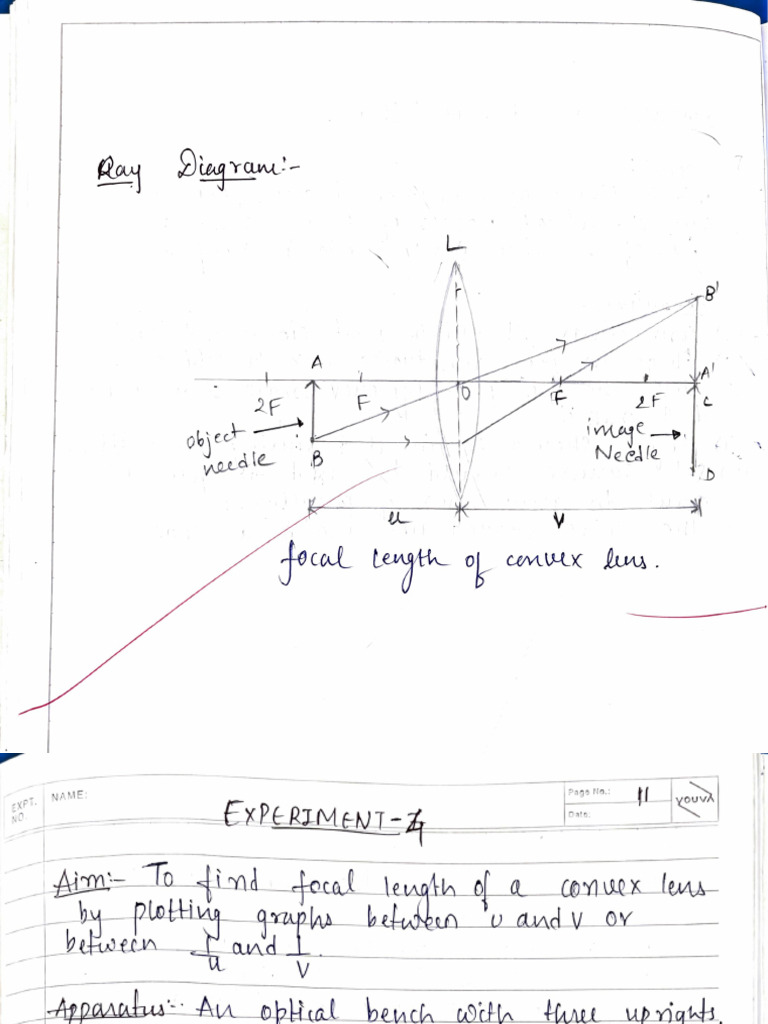 Ray Diagram:-
L
B'
A
A'
2F
F
O
F
2F
C
object
needle
image
Needle
B
D
u
v
focal length of convex lens.
EXPT. NO.
NAME:
Page No.: 11
Date:
YOUVA
EXPERIMENT-4
Aim:- To find focal length of a convex lens
by plotting graphs between u and v or
between 1/u and 1/v.
Apparatus:- An optical bench with three uprights,